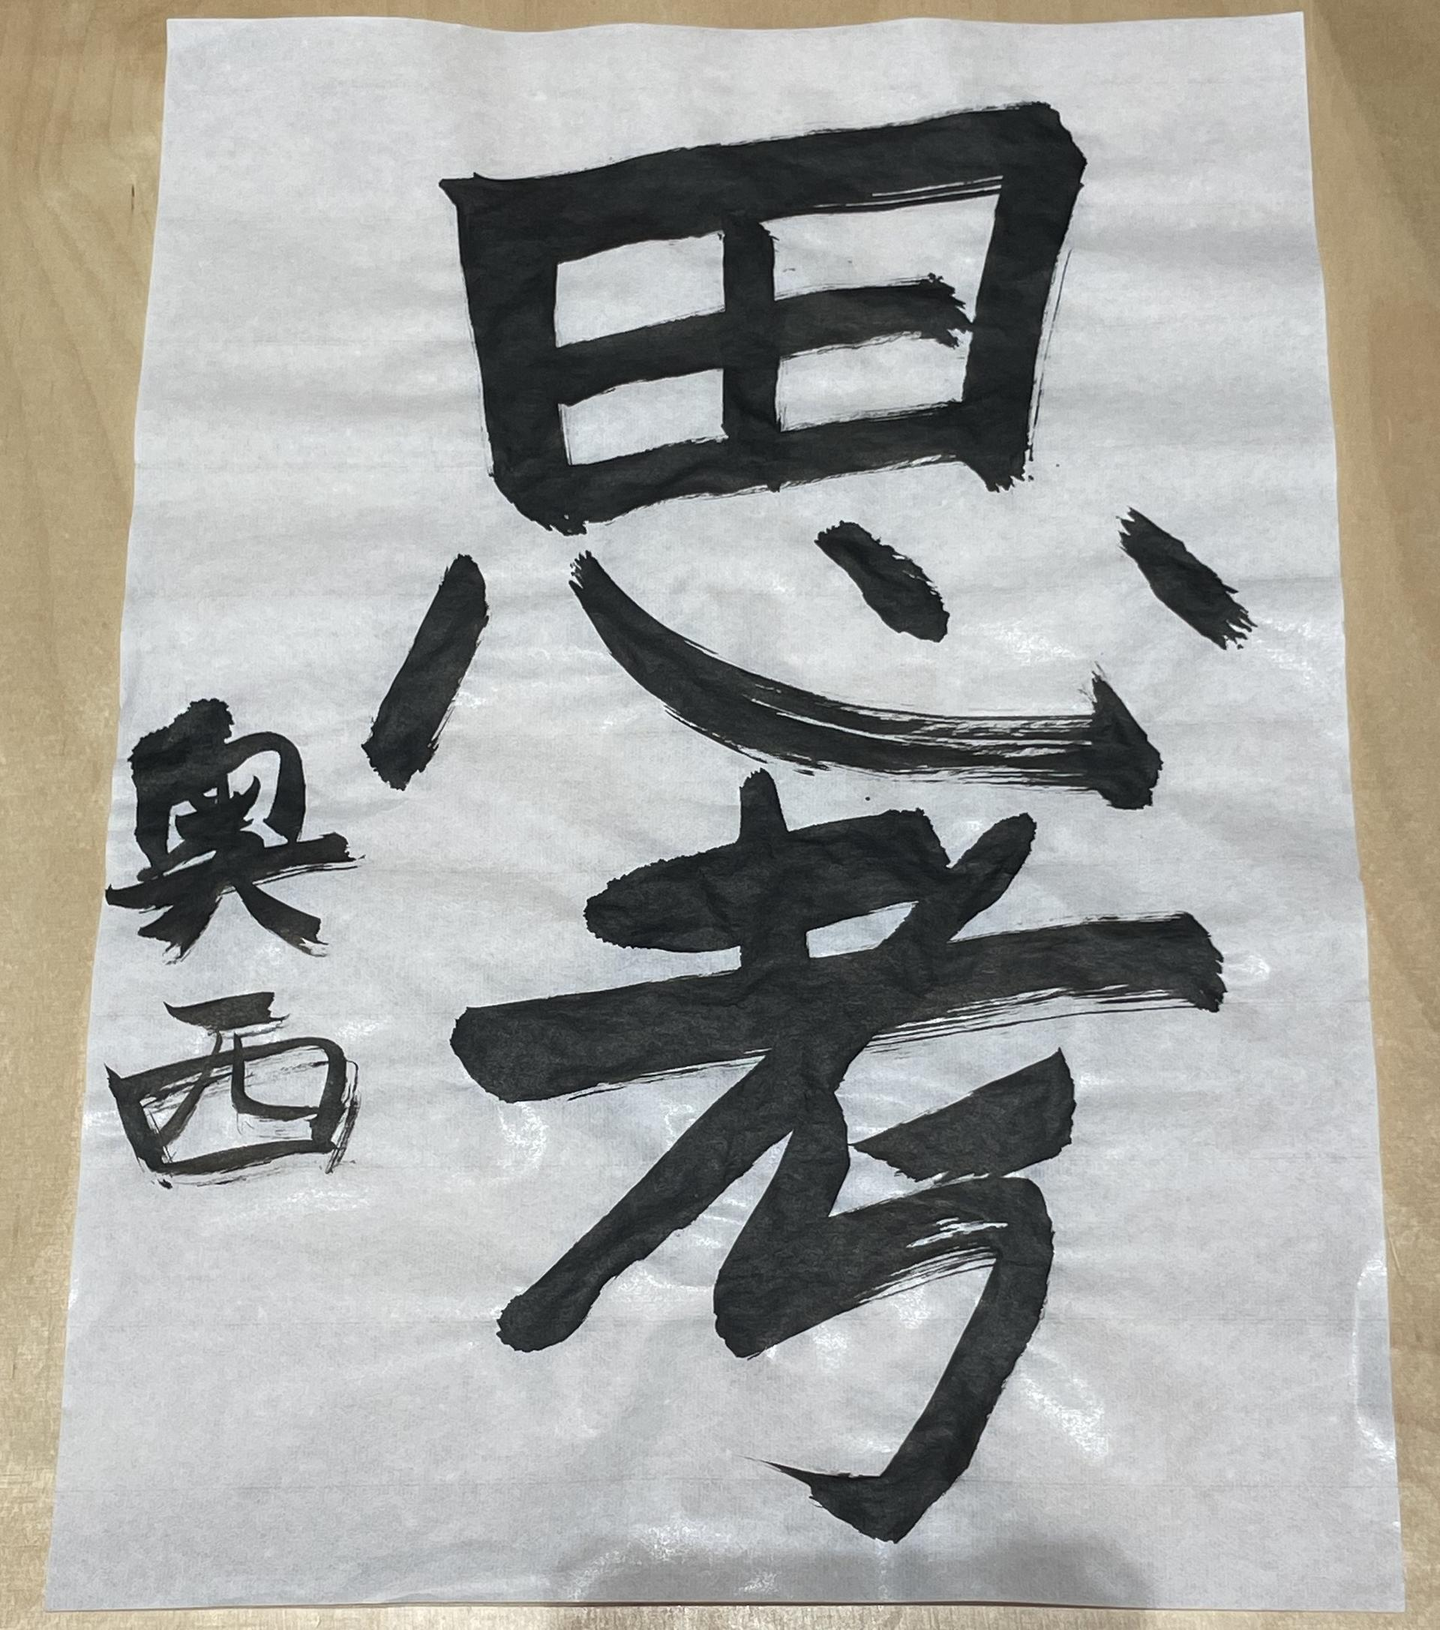 思考
奥西